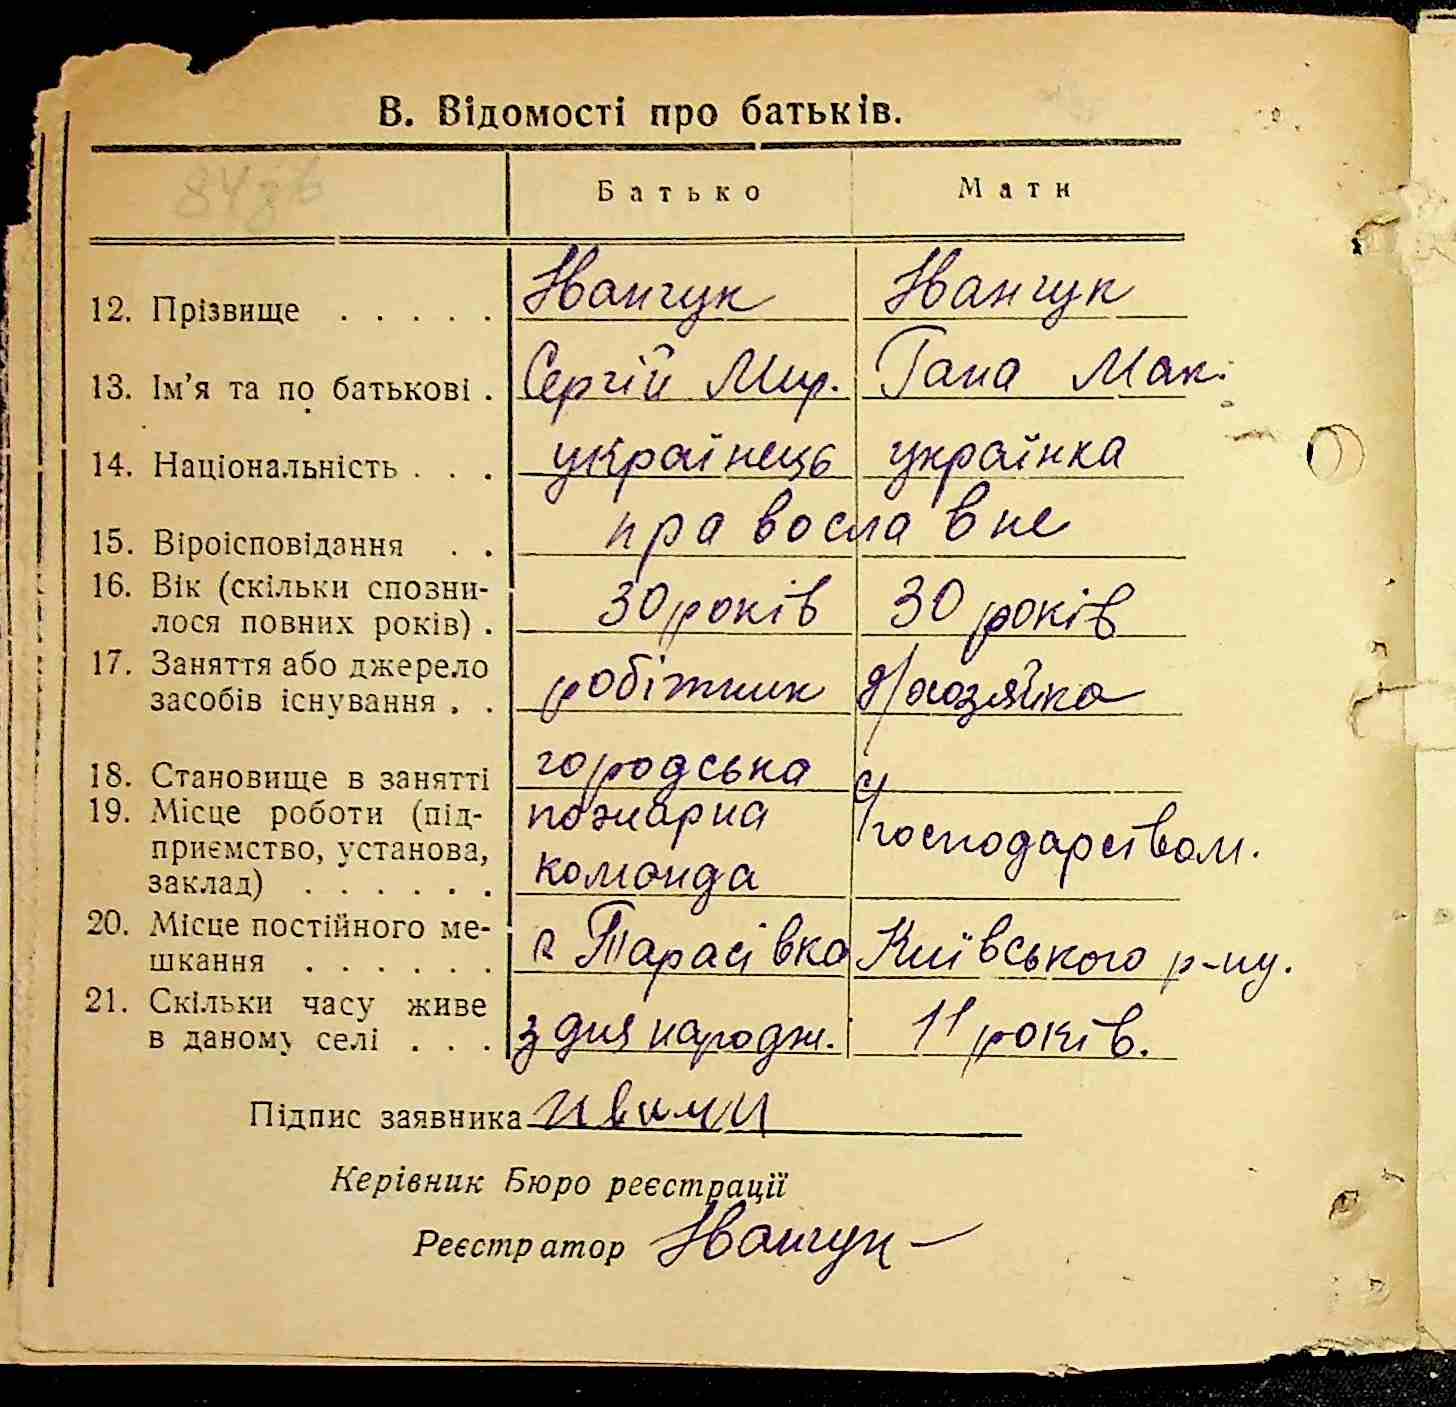 В. Відомості про батьків.
Батько Мати
12. Прізвище . . . . . Іванчук Іванчук
13. Ім’я та по батькові . Сергій Мир. Гана Мак.
14. Національність . . . українець українка
15. Віроісповідання . . православне
16. Вік (скільки сповни-
лося повних років) . 30 років 30 років
17. Заняття або джерело
засобів існування . . робітник д/хазяйка
18. Становище в занятті городська
19. Місце роботи (під-
приємство, установа,
заклад) . . . . . . пожарна команда с/господарством.
20. Місце постійного ме-
шкання . . . . . . с Тарасівка Київського р-ну.
21. Скільки часу живе
в даному селі . . . з дня народж. 11 років.
Підпис заявника
Керівник Бюро реєстрації
Реєстратор Іванчук